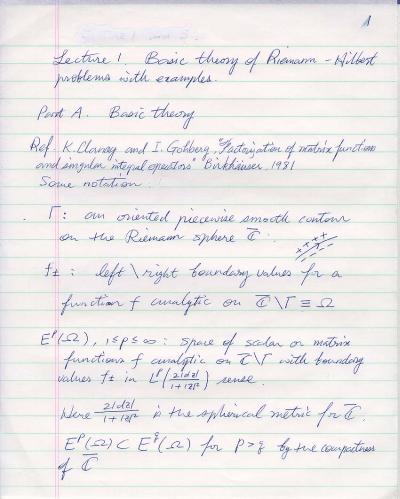 1
Lecture 1. Basic theory of Riemann - Hilbert
problems with examples.
Part A. Basic theory
Ref. K. Clancey and I. Gohberg, "Factorization of matrix functions
and singular integral operators" Birkhäuser, 1981
Some notation:
Γ: an oriented piecewise smooth contour
on the Riemann sphere C̅.
+ + + +
f±: left \ right boundary values for a
function f analytic on C̅\Γ ≡ Ω
Eᵖ(Ω), 1≤p≤∞: space of scalar or matrix
functions f analytic on C̅\Γ with boundary
values f± in Lᵖ(2|dz|/1+|z|²) sense.
Here 2|dz|/1+|z|² is the spherical metric for C̅.
Eᵖ(Ω) ⊂ E^q(Ω) for p>q by the compactness
of C̅